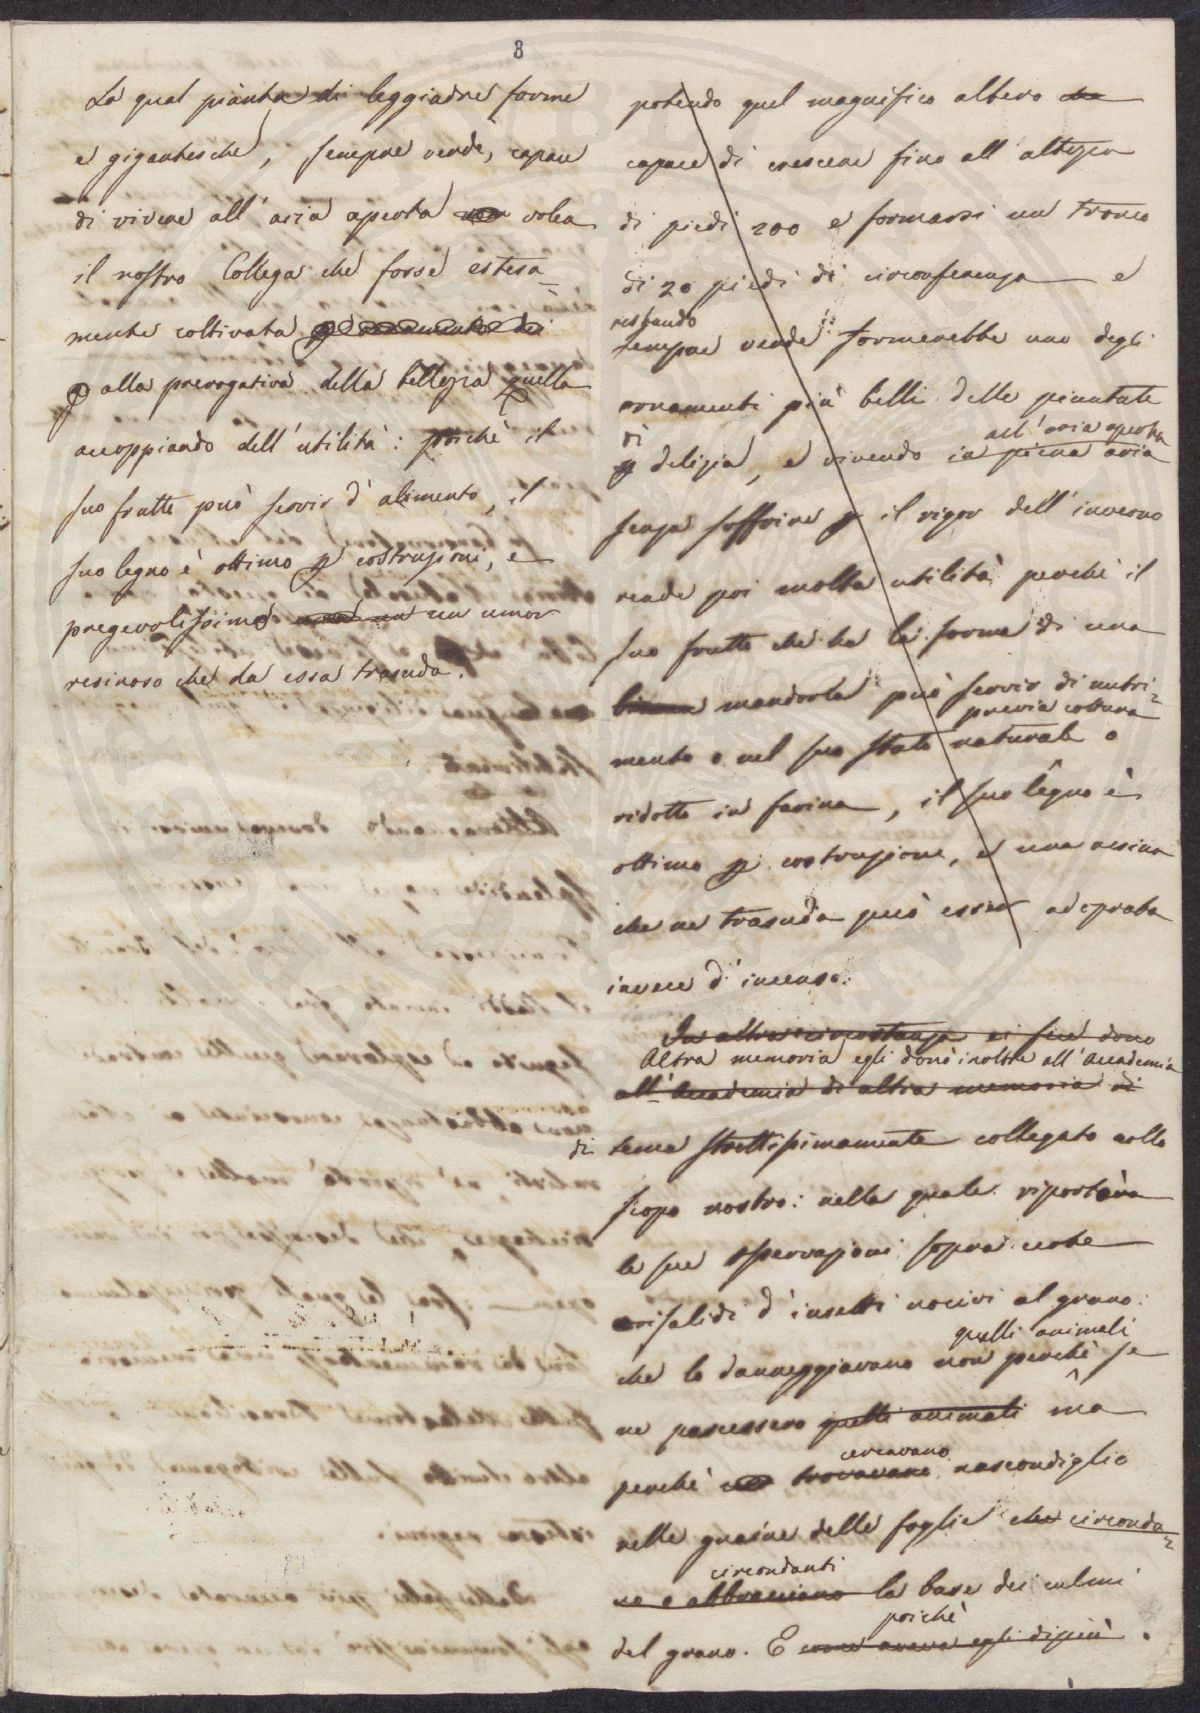 8
La qual pianta di leggiadre forme
e gigantesche, sempre verde, capace
di vivere all' aria aperta volea
il nostro Collega che fosse estesa=
mente coltivata
p alla prerogativa della bellezza quella
accoppiando dell' utilità: poichè il
suo frutto può servir d' alimento, il
suo legno è ottimo p costruzioni, e
pregevolissimo un umor
resinoso che da essa trasuda.
potendo quel magnifico albero
capace di crescere fino all' altezza
di piedi 200 e formarsi un tronco
di 20 piedi di circonferenza e
restando
sempre verde formerebbe uno degli
ornamenti più belli delle piantate
di all' aria aperta
p delizia, e vivendo in piena aria
senza soffrire p il rigor dell' inverno
rende poi molta utilità perchè il
suo frutto che ha la forma di una
mandorla può servir di nutri=
previa cottura
mento o nel suo stato naturale o
ridotto in farina, il suo legno è
ottimo p costruzione, e una resina
che ne trasuda può esser adoprata
invece d' incenso.
In altra circostanza ei fece dono
Altra memoria egli donò inoltre all' Accademia
all' Accademia di altra memoria di
di tema strettissimamente collegato collo
scopo nostro: nella quale riportava
le sue osservazioni sopra certe
crisalidi d' insetti nocivi al grano:
quelli animali
che lo danneggiavano non perchè se
ne pascessero quelli animali ma
cercavano
perchè trovavano nascondiglio
nelle guaine delle foglie che circonda=
circondanti
no e abbracciano la base dei culmi
poichè
del grano. E come aveva egli di più